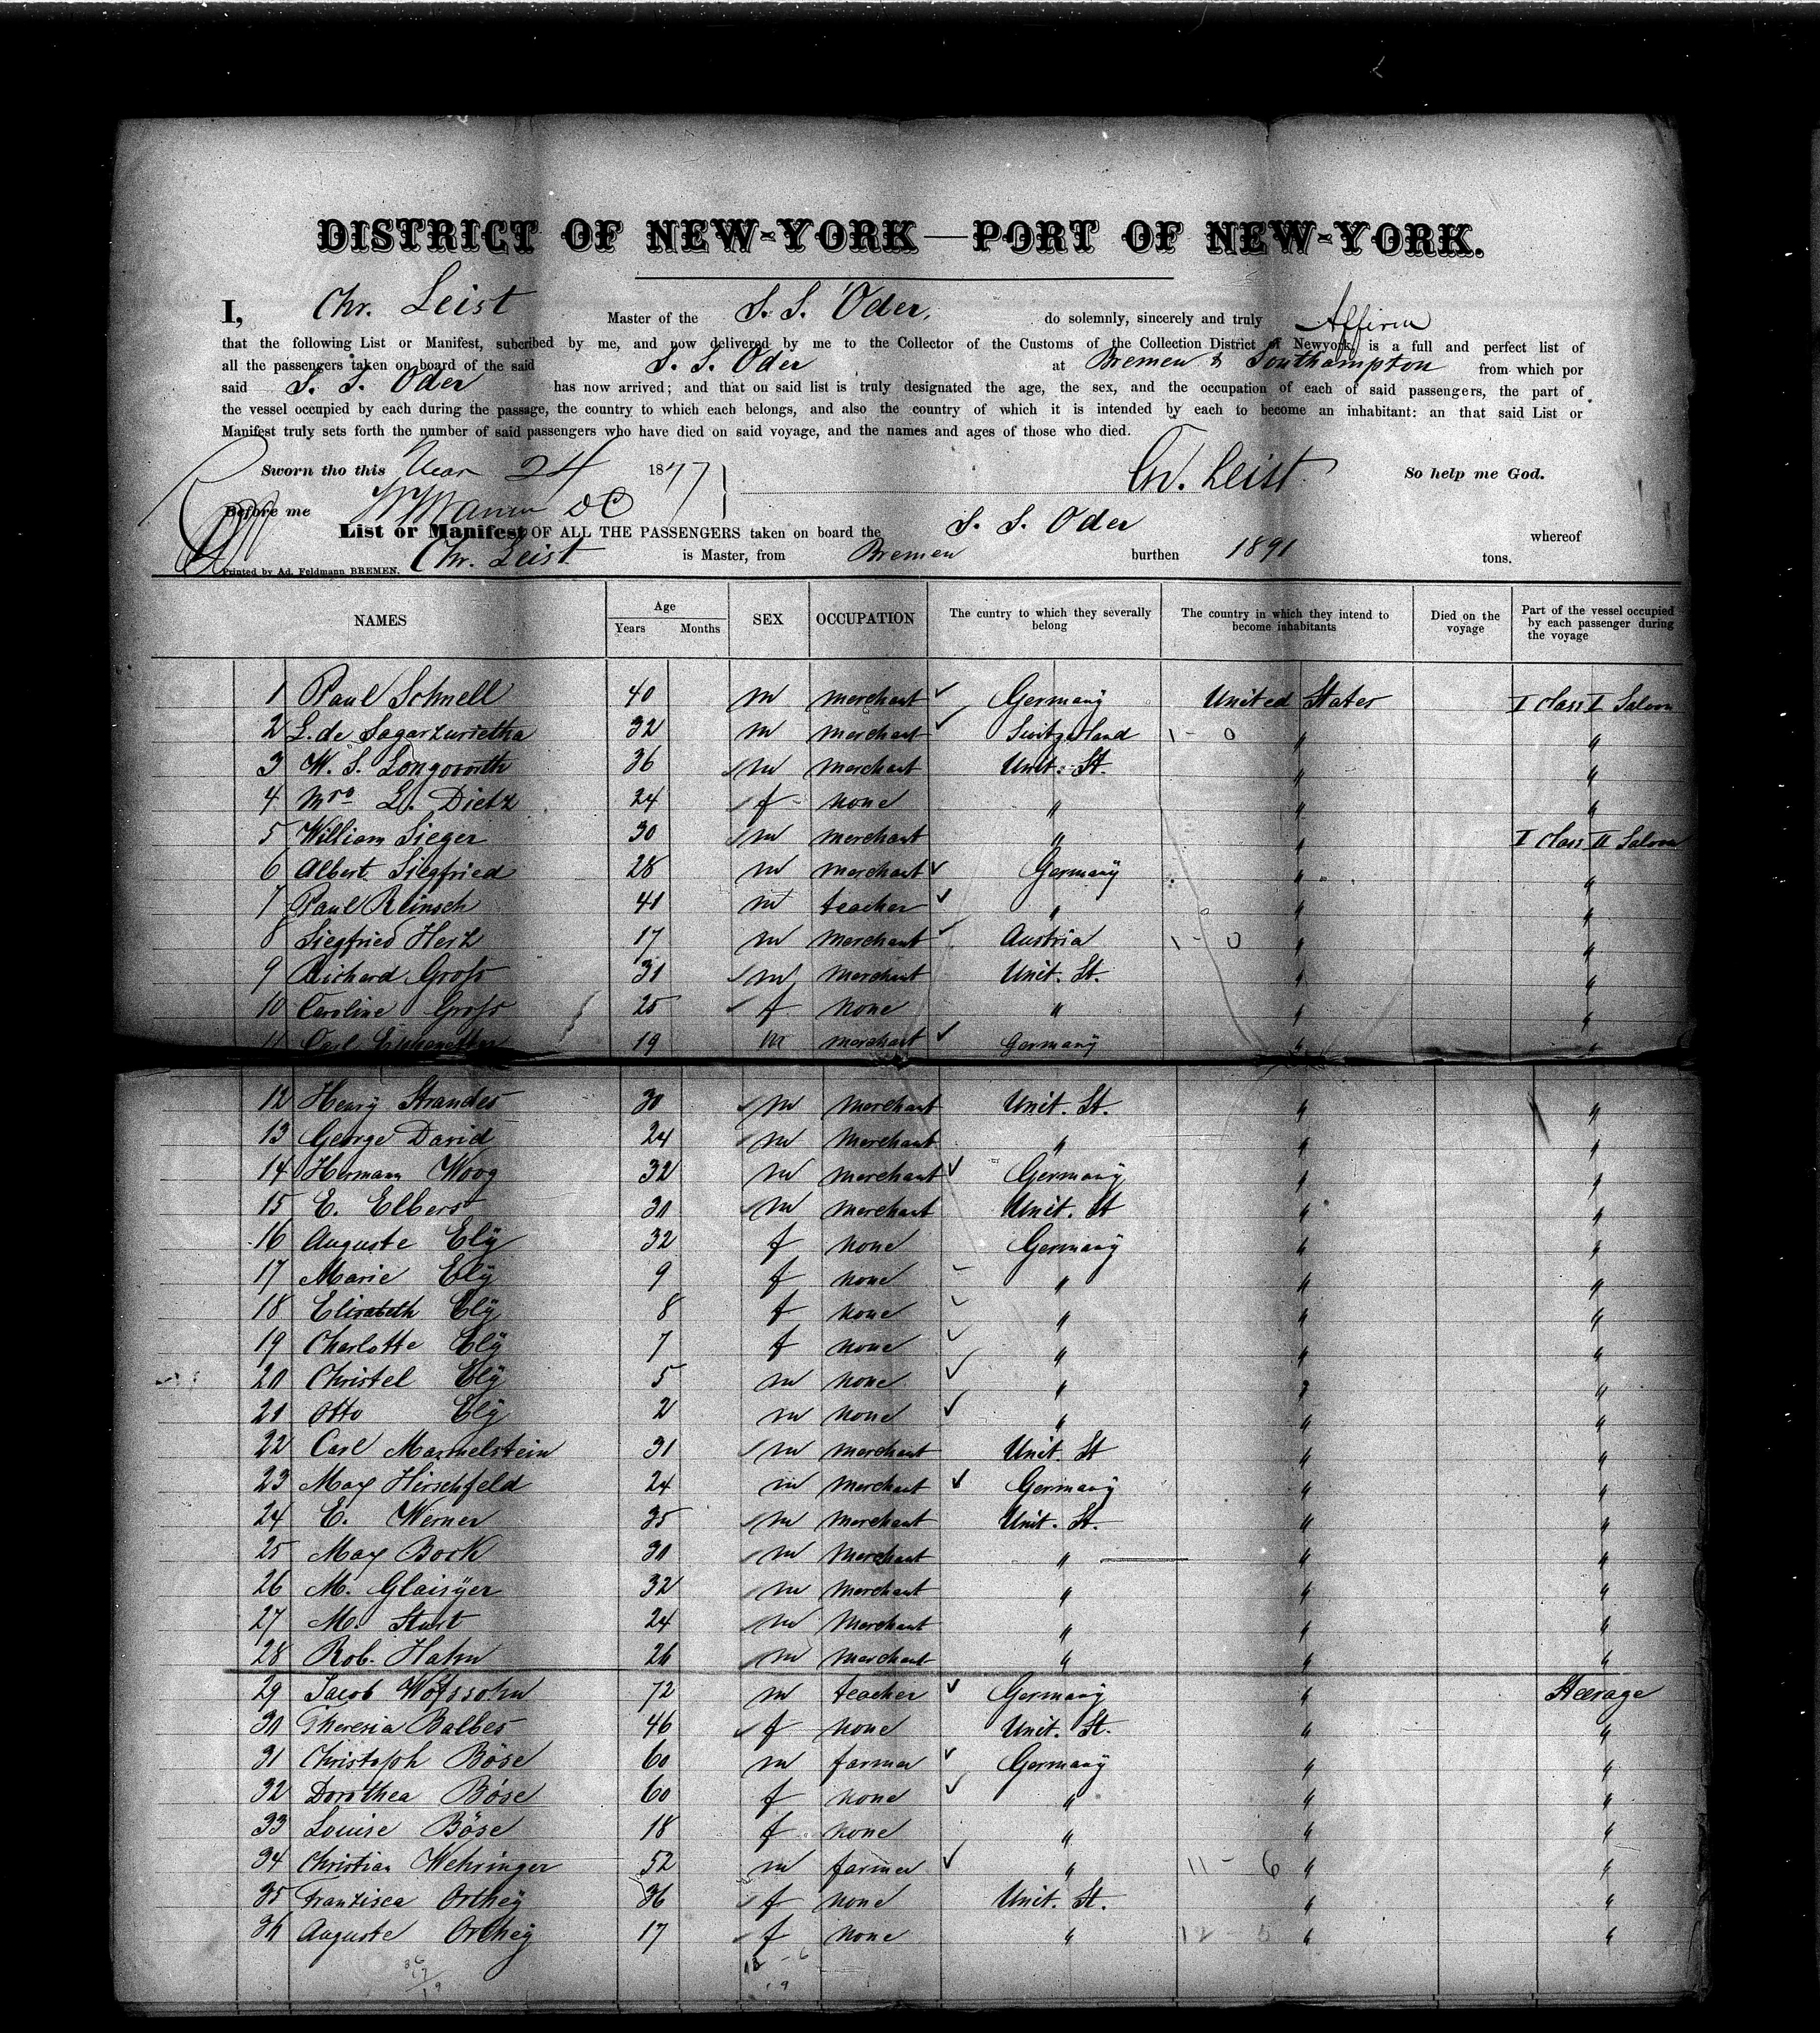 DISTRICT OF NEW-YORK—PORT OF NEW-YORK.
I, Chr. Leist Master of the S. S. Oder, do solemnly, sincerely and truly Affirm
that the following List or Manifest, subcribed by me, and now delivered by me to the Collector of the Customs of the Collection District of Newyork, is a full and perfect list of
all the passengers taken on board of the said S. S. Oder at Bremen & Southampton from which por
said S. S. Oder has now arrived; and that on said list is truly designated the age, the sex, and the occupation of each of said passengers, the part of
the vessel occupied by each during the passage, the country to which each belongs, and also the country of which it is intended by each to become an inhabitant: an that said List or
Manifest truly sets forth the number of said passengers who have died on said voyage, and the names and ages of those who died.
Sworn tho this 24 1877 Chr. Leist So help me God.
Before me
List or Manifest OF ALL THE PASSENGERS taken on board the S. S. Oder whereof
Chr. Leist is Master, from Bremen burthen 1891 tons.
Printed by Ad. Feldmann BREMEN.
NAMES Age Years Months SEX OCCUPATION The cuntry to which they severally belong The country in which they intend to become inhabitants Died on the voyage Part of the vessel occupied by each passenger during the voyage
1 Paul Schnell 40 m merchant Germany United States I Class I Saloon
2 L. de Sagarzurietha 32 m merchant Switzerland 1 - 0 " "
3 W. S. Longworth 36 m merchant Unit. St. " "
4 Mrs L. Dietz 24 f none " " "
5 William Sieger 30 m merchant " " I Class II Saloon
6 Albert Siegfried 28 m merchant Germany " "
7 Paul Reinsch 41 m teacher " " "
8 Siegfried Herz 17 m merchant Austria 1 - 0 " "
9 Richard Gross 31 m merchant Unit. St. " "
10 Caroline Gross 25 f none " " "
11 Carl 19 m merchant Germany " "
12 Henry Strandes 30 m merchant Unit. St. " "
13 George David 24 m merchant " " "
14 Hermann Woog 32 m merchant Germany " "
15 E. Elbers 30 m merchant Unit. St " "
16 Auguste Elÿ 32 f none Germany " "
17 Marie Elÿ 9 f none " " "
18 Elisabeth Elÿ 8 f none " " "
19 Charlotte Elÿ 7 f none " " "
20 Christel Elÿ 5 m none " " "
21 Otto Elÿ 2 m none " " "
22 Carl Mammelstein 31 m merchant Unit. St " "
23 Max Hirschfeld 24 m merchant Germany " "
24 E. Werner 35 m merchant Unit. St. " "
25 Max Bock 30 m merchant " " "
26 M. Glaisÿer 32 m merchant " " "
27 M. Sturt 24 m merchant " " "
28 Rob. Hahn 26 m merchant " " "
29 Jacob Wolfssohn 72 m teacher Germany " Steerage
30 Theresia Balbes 46 f none Unit. St. " "
31 Christoph Böse 60 m farmer Germany " "
32 Dorothea Böse 60 f none " " "
33 Louise Böse 18 f none " " "
34 Christian Wehringer 52 m farmer " 11 - 6 " "
35 Franzisca Orthey 36 f none Unit. St. " "
36 Auguste Orthey 17 f none " " "